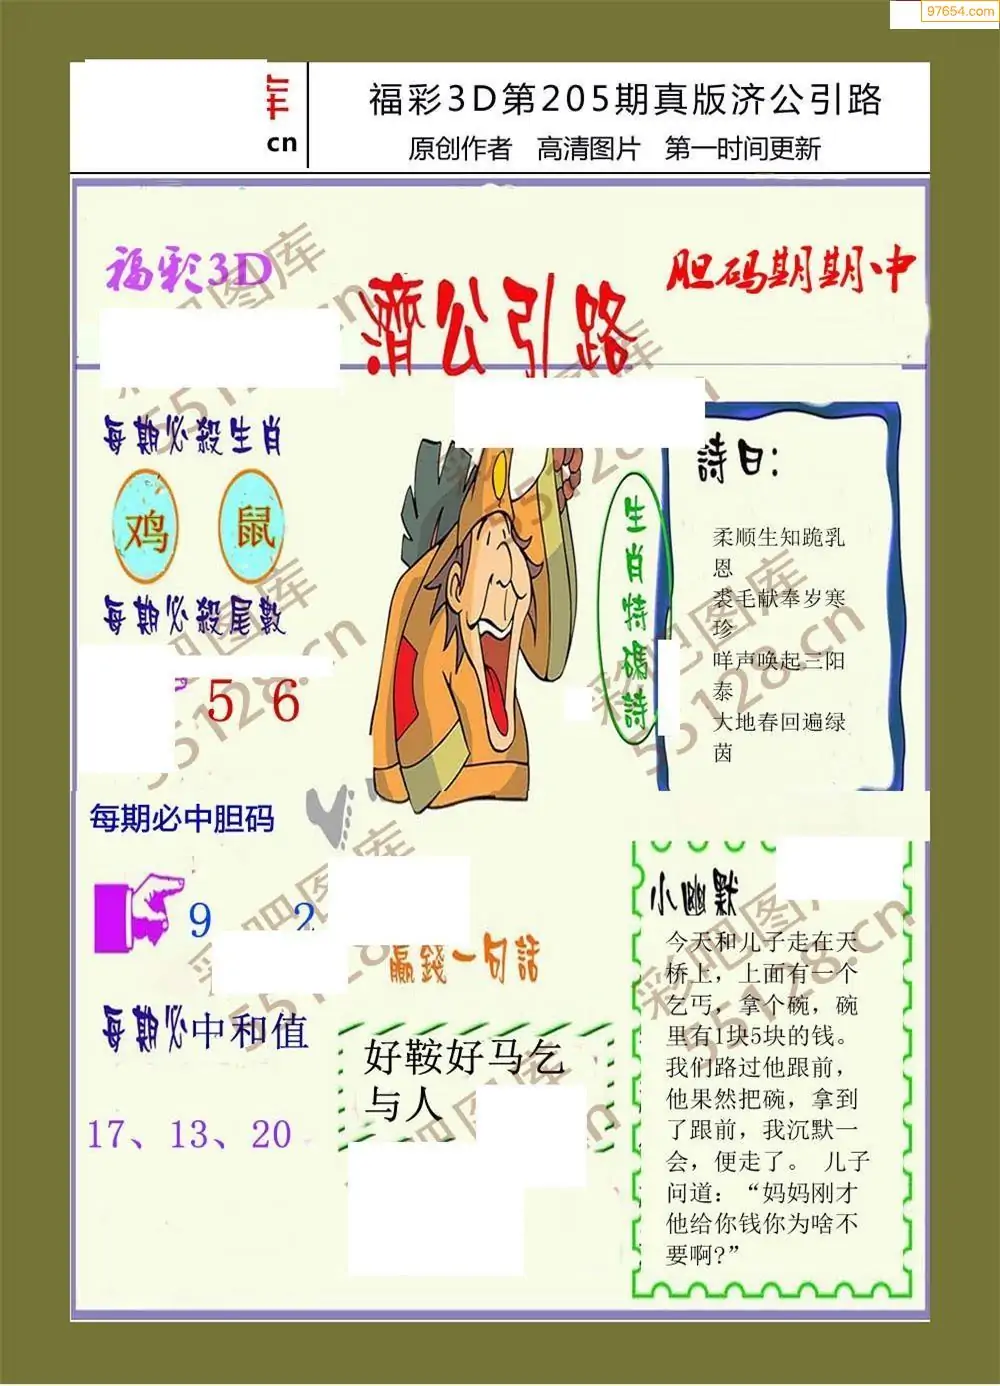 97654.com
库
cn
福彩3D第205期真版济公引路
原创作者 高清图片 第一时间更新
福彩3D
濟公引路
胆码期期中
每期必殺生肖
鸡 鼠
每期必殺尾數
5 6
生肖特碼詩
詩曰：
柔顺生知跪乳
恩
裘毛献奉岁寒
珍
咩声唤起三阳
泰
大地春回遍绿
茵
每期必中胆码
9 2
每期必中和值
17、13、20
贏錢一句話
好鞍好马乞
与人
小幽默
今天和儿子走在天
桥上，上面有一个
乞丐，拿个碗，碗
里有1块5块的钱。
我们路过他跟前，
他果然把碗，拿到
了跟前，我沉默一
会，便走了。 儿子
问道：“妈妈刚才
他给你钱你为啥不
要啊?”
彩吧图库
55128.cn